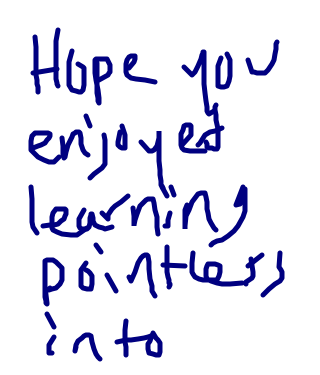 Hope you
enjoyed
learning
pointless
into